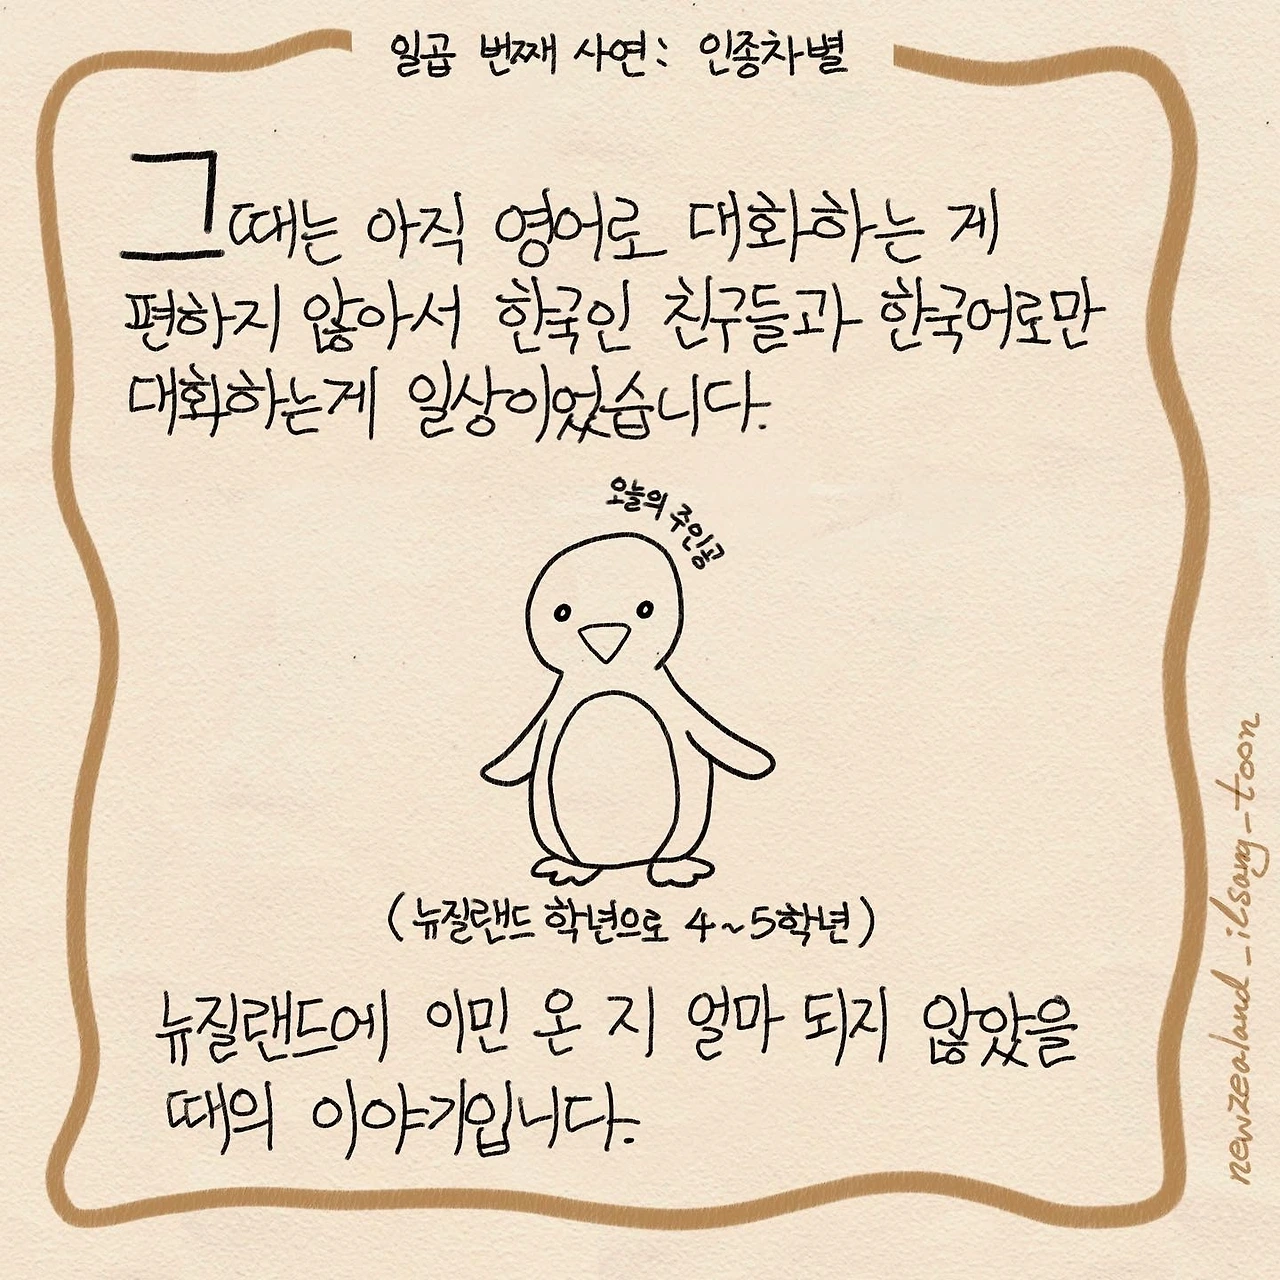 일곱 번째 사연: 인종차별
그때는 아직 영어로 대화하는 게
편하지 않아서 한국인 친구들과 한국어로만
대화하는게 일상이었습니다.
오늘의 주인공
(뉴질랜드 학년으로 4~5학년)
뉴질랜드에 이민 온 지 얼마 되지 않았을
때의 이야기입니다.
newzealand_ilsang_toon